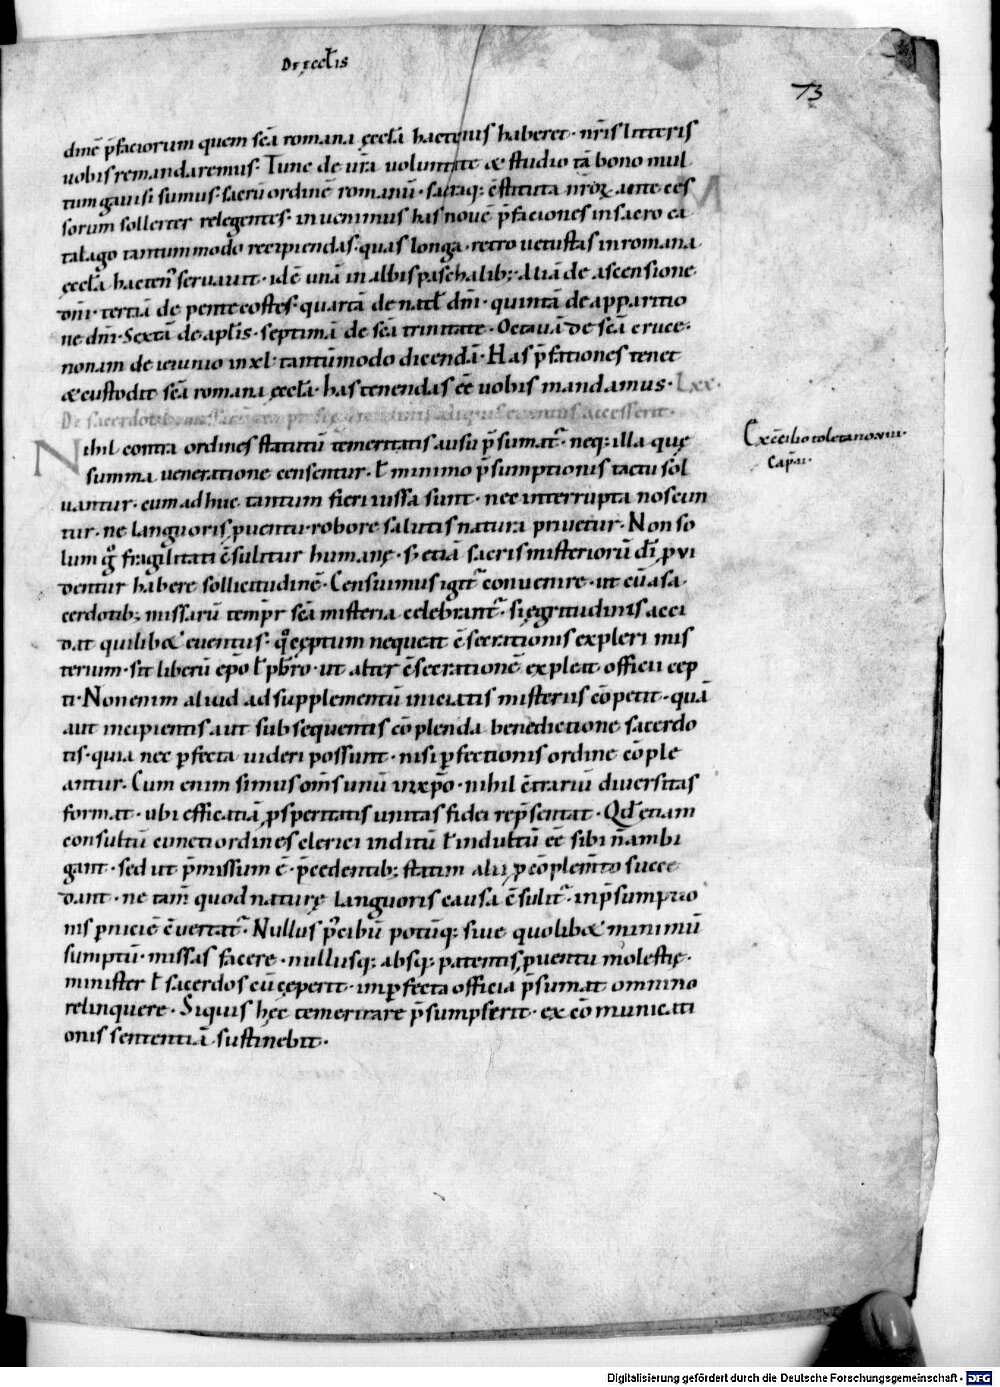 De ęccłis
73
dinē p̄faciorum quem scā romana ęccła hactenus haberet · nr̄is litteris
uobis remandaremus · Tunc de ur̄a uoluntate & studio tā bono mul
tum gauisi sumus · sacrū ordinē romanū · sacraq; c̄stituta nr̄oꝝ ante ces
sorum sollerter relegentes · inuenimus has nouē p̄faciones in sacro ca
talago tantummodo recipiendas · quas longa · retro uetustas in romana
ęccła hacten᾽ seruauit · idē unā in albis paschalib; · Aliā de ascensione
dn̄i · tertiā de pentecostes · quartā de natł dn̄i · quintā de apparitio
ne dn̄i · Sextā de apłis · septimā de scā trinitate · Octauā de scā cruce ·
nonam de ieiunio in xl · tantūmodo dicendā · Has p̄fationes tenet
& custodit scā romana ęccła · has tenendas eē uobis mandamus · Lxx ·
De sacerdotib;
Nihil contra ordines statutū temeritatis ausu p̄sumat᷑ · neq; illa quę
summa ueneratione censentur · ł minimo p̄sumptionis tactu sol
uantur · cum ad huc tantum fieri iussa sunt · nec interrupta noscun
tur · ne languoris ꝓuentu robore salutis natura priuetur · Non so
lum g° fragilitati c̄sulitur humanę · s; etiā sacris misteriorū dī ꝓui
dentur habere sollicitudinē · Censuimus igit᷑ conuenire · ut cū a sa
cerdotib; missarū tempr̄ scā misteria celebrant᷑ · si ęgritudinis acci
dat quilib& euentus · q° cęptum nequeat c̄secrationis expleri mis
terium · sit liberū ep̄o ł pb̄ro · ut alter c̄secrationē expleat officii cep
ti · Non enim aliud ad supplementū iniciatis misteriis cōpetit · quā
aut incipientis aut subsequentis cōplenda benedictione sacerdo
tis · quia nec ꝑfecta uideri possunt · nisi ꝑfectionis ordine cōple
antur · Cum enim simus om̄s unū in xp̄o · nihil c̄trariū diuersitas
format · ubi efficatiā ꝓsperitatis unitas fidei rep̄sentat · Qd̄ etiam
consultū cuncti ordines clerici inditū ł indultū eē sibi n̄ ambi
gant · sed ut p̄missum ē · p̄cedentib; statim alii ꝓ cōplem̄to succe
dant · ne tam̄ quod naturę languoris causa c̄sulit᷑ · in p̄sumptio
nis ꝑniciē c̄uertat᷑ · Nullus p᷑ cibū potūq; siue quolib& minimū
sumptū · missas facere · nullusq; absq; patentis ꝓuentu molestię ·
minister ł sacerdos cū cęperit · imꝑfecta officia p̄sumat omnino
relinquere · Siquis hęc temeritare p̄sumpserit · excōmunicati
onis sententiā sustinebit ·
Ex c̄cilio toletano · viii ·
Cap̄ · ii ·
Digitalisierung gefördert durch die Deutsche Forschungsgemeinschaft - DFG